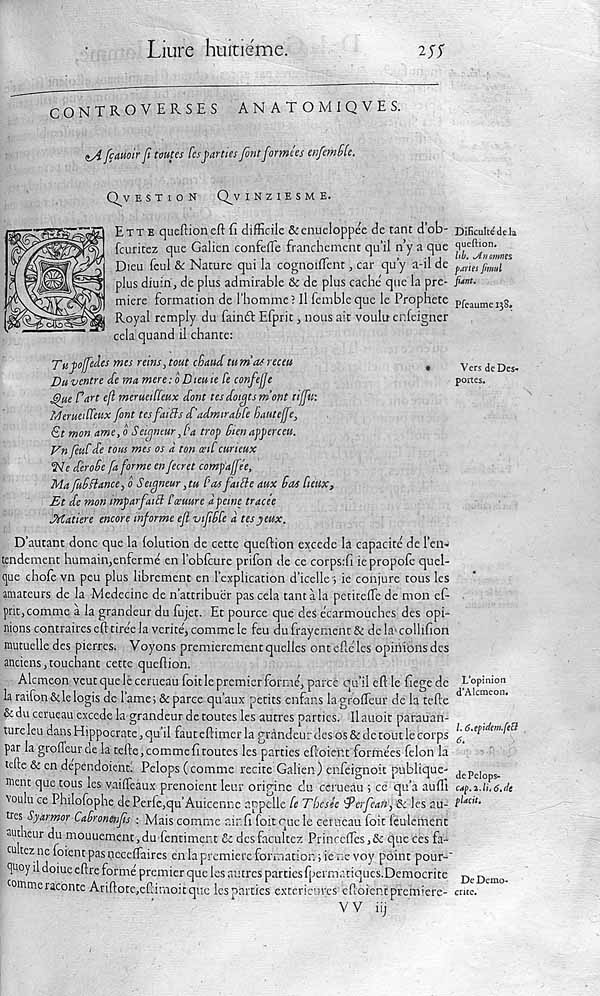 Liure huitiéme. 255
CONTROVERSES ANATOMIQVES.
A sçauoir si toutes les parties sont formées ensemble.
QVESTION QVINZIESME.
CETTE question est si difficile & enueloppée de tant d'ob-
scuritez que Galien confesse franchement qu'il n'y a que
Dieu seul & Nature qui la cognoissent, car qu'y a-il de
plus diuin, de plus admirable & de plus caché que la pre-
miere formation de l'homme? Il semble que le Prophete
Royal remply du sainct Esprit, nous ait voulu enseigner
cela quand il chante:
Dificulté de la
question.
lib. An omnes
partes simul
fiant.
Pseaume 138.
Tu possedes mes reins, tout chaud tu m'as receu
Du ventre de ma mere: ô Dieu ie le confesse
Que l'art est merueilleux dont tes doigts m'ont tissu:
Merueilleux sont tes faicts d'admirable hautesse,
Et mon ame, ô Seigneur, l'a trop bien apperceu.
Vn seul de tous mes os à ton œil curieux
Ne derobe sa forme en secret compassée,
Ma substance, ô Seigneur, tu l'as faicte aux bas lieux,
Et de mon imparfaict l'œuure à peine tracée
Matiere encore informe est visible à tes yeux.
Vers de Des-
portes.
D'autant donc que la solution de cette question excede la capacité de l'en-
tendement humain, enfermé en l'obscure prison de ce corps: si ie propose quel-
que chose vn peu plus librement en l'explication d'icelle; ie conjure tous les
amateurs de la Medecine de n'attribuër pas cela tant à la petitesse de mon es-
prit, comme à la grandeur du sujet. Et pource que des écarmouches des opi-
nions contraires est tirée la verité, comme le feu du frayement & de la collision
mutuelle des pierres. Voyons premierement quelles ont esté les opinions des
anciens, touchant cette question.
Alcmeon veut que le cerueau soit le premier formé, parce qu'il est le siege de
la raison & le logis de l'ame; & parce qu'aux petits enfans la grosseur de la teste
& du cerueau excede la grandeur de toutes les autres parties. Il auoit parauan-
ture leu dans Hippocrate, qu'il faut estimer la grandeur des os & de tout le corps
par la grosseur de la teste, comme si toutes les parties estoient formées selon la
teste & en dépendoient. Pelops (comme recite Galien) enseignoit publique-
ment que tous les vaisseaux prenoient leur origine du cerueau; ce qu'a aussi
voulu ce Philosophe de Perse, qu'Auicenne appelle le Thesée Persean, & les au-
tres Syarmor Cabronensis: Mais comme ainsi soit que le cerueau soit seulement
autheur du mouuement, du sentiment & des facultez Princesses, & que ces fa-
cultez ne soient pas necessaires en la premiere formation; ie ne voy point pour-
quoy il doiue estre formé premier que les autres parties spermatiques. Democrite
comme raconte Aristote, estimoit que les parties exterieures estoient premiere-
L'opinion
d'Alcmeon.
l. 6. epidem. sect
6.
de Pelops.
cap. 2. li. 6. de
placit.
De Demo-
crite.
VV iij